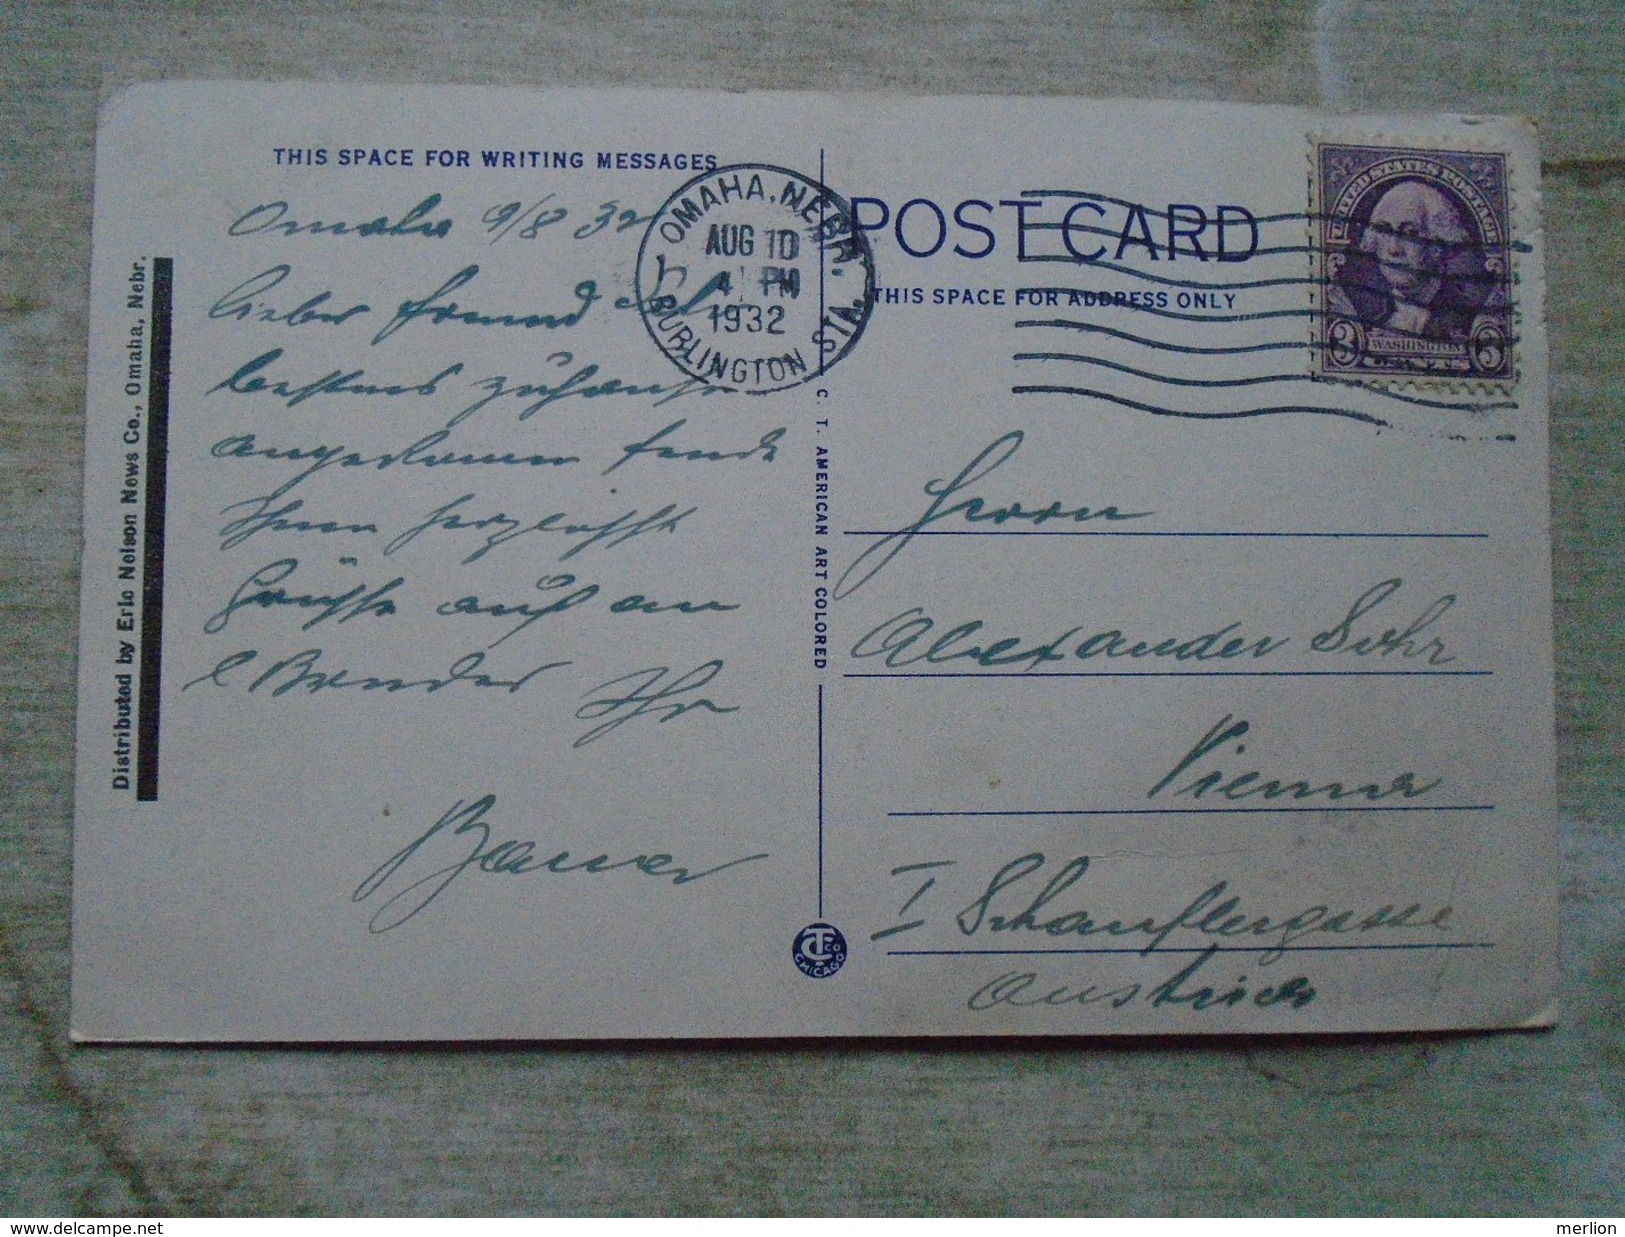 THIS SPACE FOR WRITING MESSAGES
Omaha 9/8 32
Lieber Freund
bestens zuhause
angekommen sende
Ihnen herzlichste
Grüsse auch an
Bruder Ihr
Bauer
Distributed by Eric Nelson News Co., Omaha, Nebr.
OMAHA, NEBR.
AUG 10
4 PM
1932
BURLINGTON STA.
C. T. AMERICAN ART COLORED
CT CO
CHICAGO
POST CARD
THIS SPACE FOR ADDRESS ONLY
UNITED STATES POSTAGE
3 WASHINGTON 3
Herrn
Alexander Sohr
Vienna
I Schauflergasse
Austria
merlion
www.delcampe.net